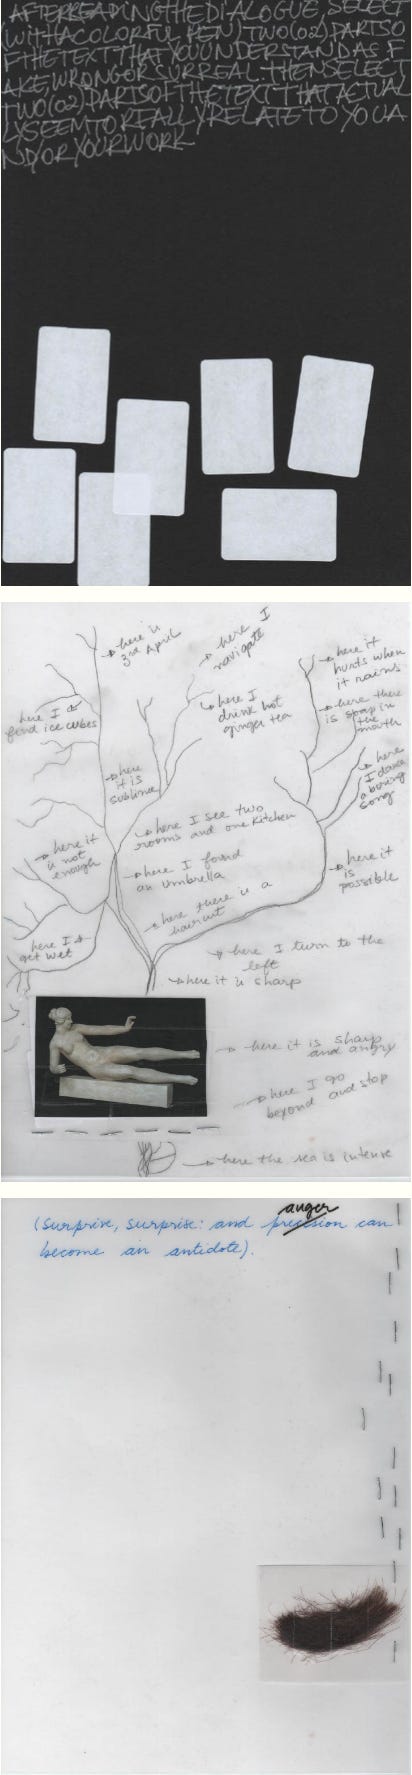 AFTERREADINGTHEDIALOGUE, SELECT
(WITHACOLORFUL PEN) TWO(02) PARTSO
FTHETEXTTHATYOUUNDERSTANDAS F
AKE,WRONGORSURREAL.THENSELECT
TWO(02)PARTSOFTHETEXTTHATACTUAL
LYSEEMTOREALLYRELATE TO YOUA
NDYORYOURWORK
here is
3rd April
here I
navigate
here it
hurts when
it rains
here I
find ice cubes
here I
drink hot
ginger tea
here there
is soap in
the
mouth
here
it is
sublime
here
I dance
a boring
song
here I see two
rooms and one kitchen
here it
is not
enough
here I found
an umbrella
here it
is
possible
here there is a
haircut
here I
get wet
here I turn to the
left
here it is sharp
here it is sharp
and angry
here I go
beyond and stop
here the sea is intense
anger
(Surprise, surprise: and precision can
become an antidote).